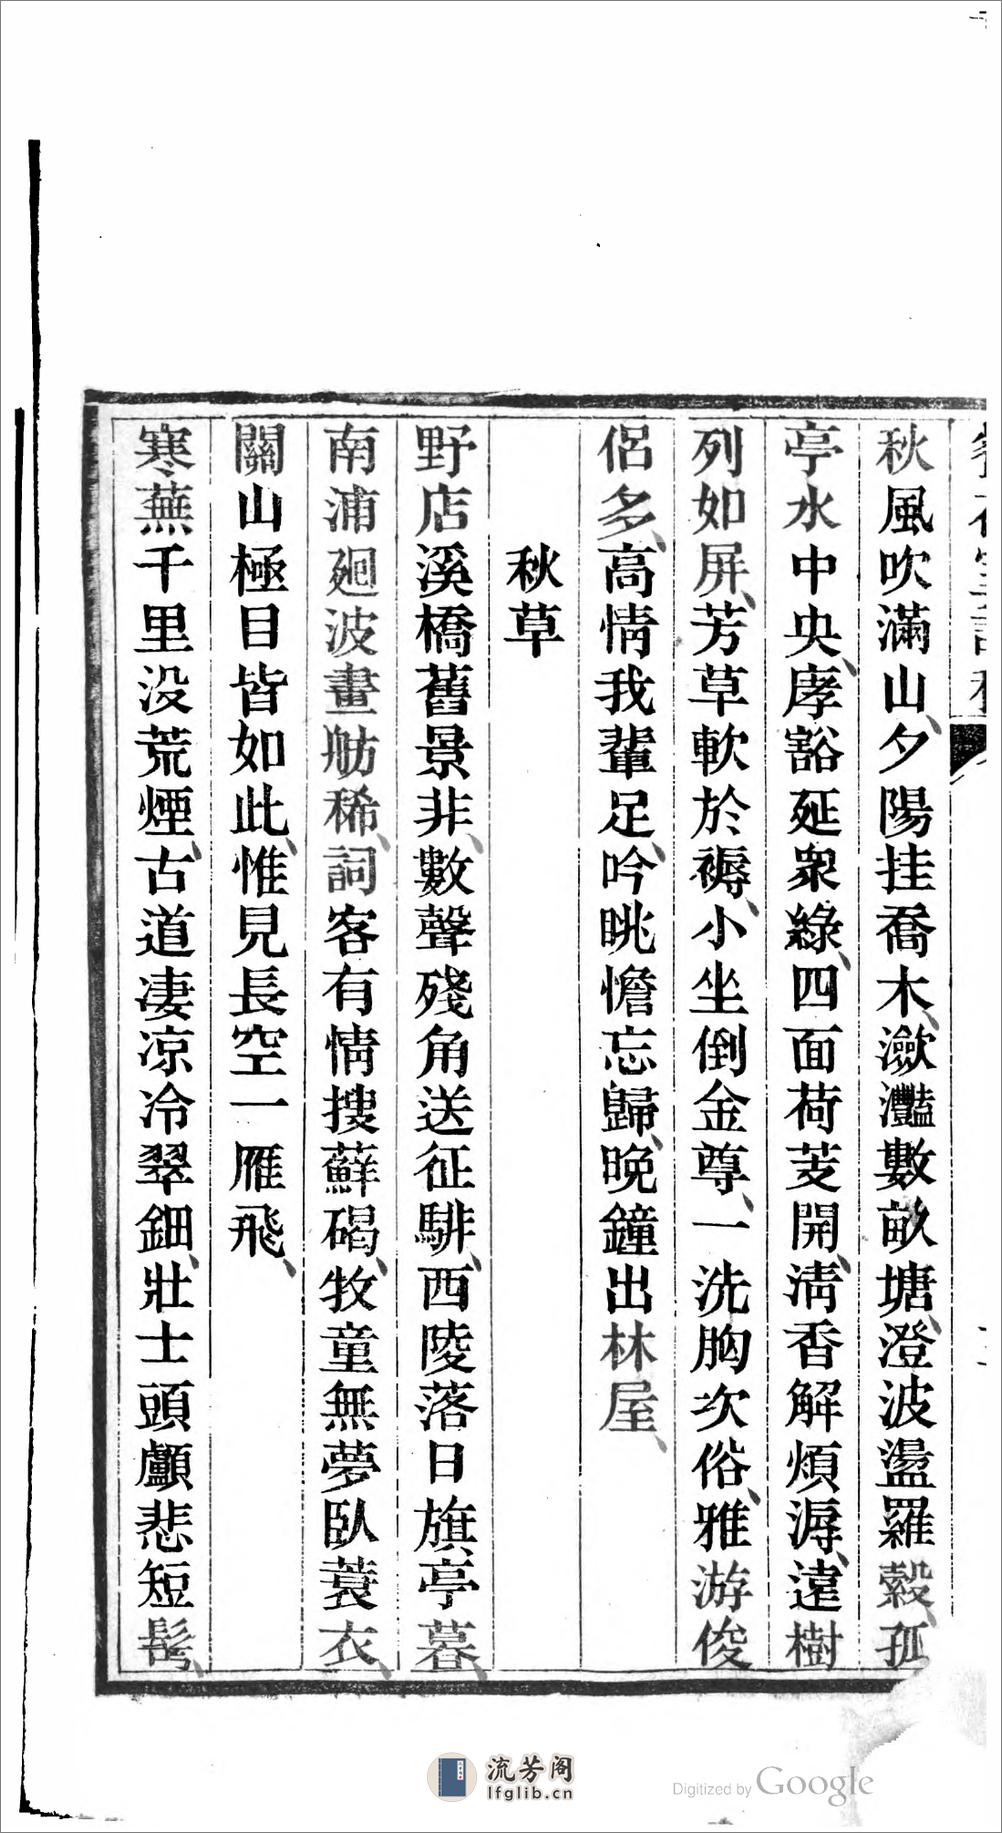 秋風吹滿山、夕陽挂喬木、瀲灩數畝塘、澄波盪羅縠、孤
亭水中央、庨豁延衆綠、四面荷芰開、清香解煩溽、遠樹
列如屏、芳草軟於褥、小坐倒金尊、一洗胸次俗、雅游俊
侶多、高情我輩足、吟眺憺忘歸、晚鐘出林屋、
秋草
野店溪橋舊景非、數聲殘角送征騑、西陵落日旗亭暮、
南浦廻波畫舫稀、詞客有情搜蘚碣、牧童無夢臥蓑衣、
關山極目皆如此、惟見長空一雁飛、
寒蕪千里没荒煙、古道凄凉冷翠鈿、壯士頭顱悲短髩、
流芳阁
lfglib.cn
Digitized by Google